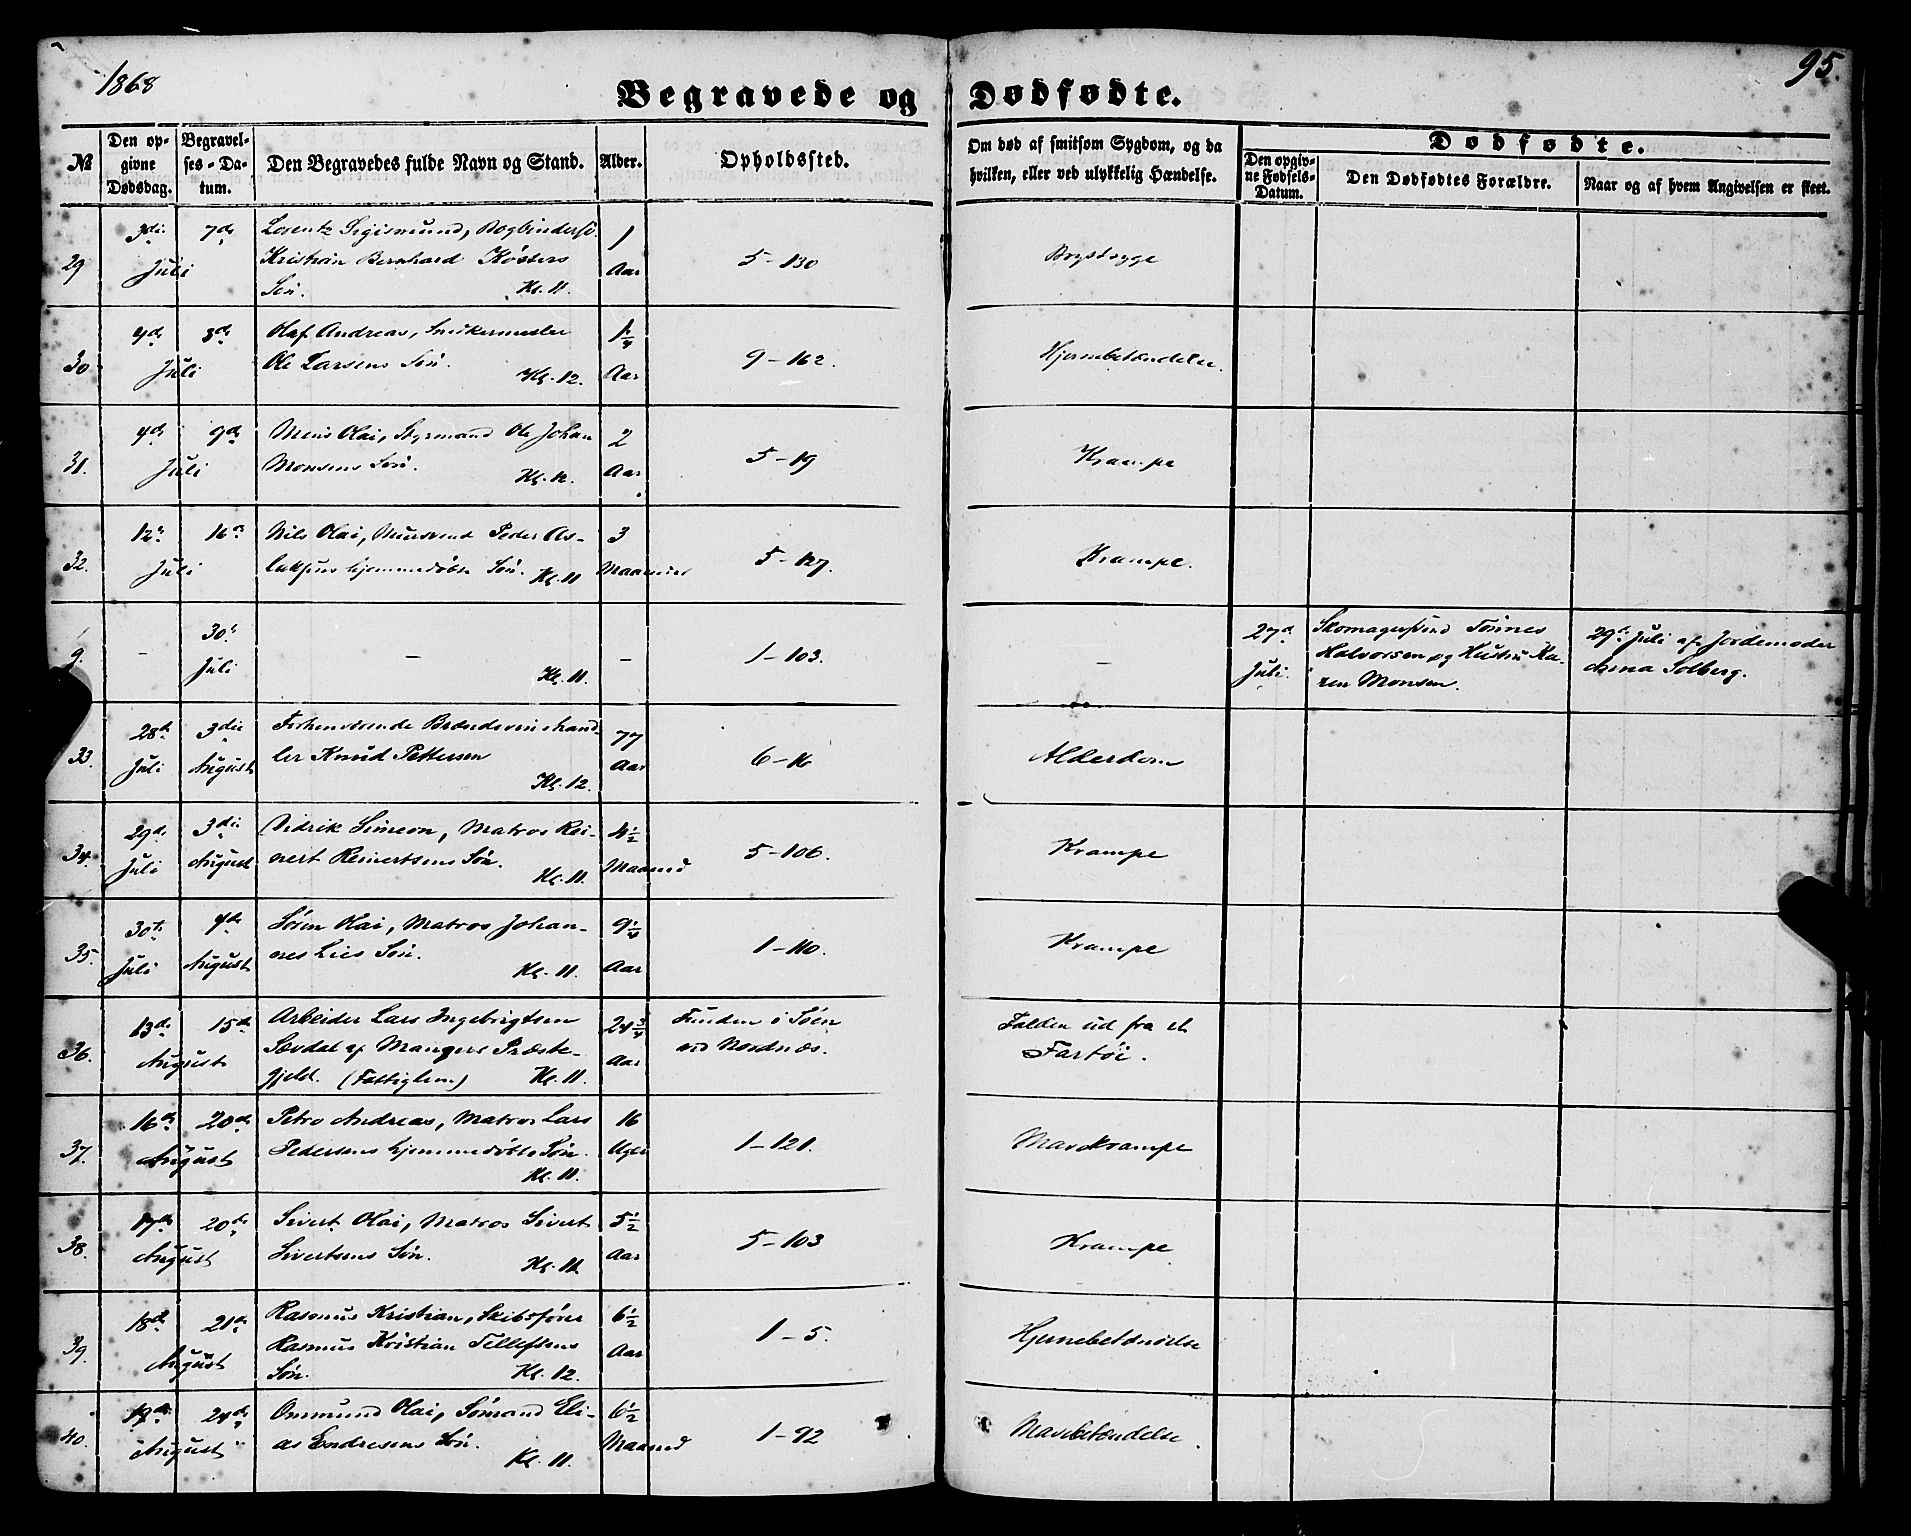 1868
95.
Begravede og Dødfødte.
№
Den opgivne Dødsdag.
Begravelses-Datum.
Den Begravedes fulde Navn og Stand.
Alder.
Opholdssted.
Om død af smitsom Sygdom, og da hvilken, eller ved ulykkelig Hændelse.
Dødfødte.
Den opgivne Fødsels-Datum.
Den Dødfødtes Forældre.
Naar og af hvem Angivelsen er skeet.
29 3die 7de Juli
Lorentz Sigismund, Bogbinders.
Kristian Bernhard Kösters
Søn. Kl. 11.
1 Aar
5-130
Brystsyge
30 4de 8de Juli
Olaf Andreas, Snekermester
Ole Larsens Søn.
Kl. 12.
1¼ Aar
9-162.
Hjernebetændelse.
31. 4de 9de Juli
Mons Olai, Styrmand Ole Johan
Monsens Søn.
Kl. 12.
2 Aar
5-19
Krampe
32. 12te 16de Juli
Nils Olai, Muursvend Peder As-
laksens hjemmedøbte Søn. Kl. 11
3 Maaneder
5-127.
Krampe.
9. - 30te Juli
-
Kl. 11.
-
1-103.
-
27de Juli
Skomagersvend Tönnes
Halvorsen og Hustru Ka-
ren Monsen.
29de Juli af Jordemoder
Anna Solberg.
33. 28de Juli 3die August
Forhenværende Brændeviinshand-
ler Knud Pettersen
Kl. 12.
77 Aar
6-16
Alderdom
34. 29de Juli 3die August
Didrik Simeon, Matros Rei-
nert Reinertsens Søn.
Kl. 11.
4½ Maaned
5-106.
Krampe
35. 30te Juli 4de August
Sören Olai, Matros Johan-
nes Lies Søn.
Kl. 11.
9¼ Aar
1-110.
Krampe
36. 13de 15de August
Arbeider Lars Ingebrigtsen
Sævdal af Mangers Præste-
gjeld. (Fattiglem) Kl. 11.
24¾ Aar
Funden i Søen
ved Nordnæs.
Falden ud fra et
Fartöi.
37. 16de 20de August
Petro Andreas, Matros Lars
Pedersens hjemmedøbte Søn.
Kl. 11.
16 Uger
1-121.
Mavekrampe
38. 17de 20de August
Sivert Olai, Matros Sivert
Sivertsens Søn.
Kl. 11.
5½ Aar
5-103
Krampe
39. 18de 21de August
Rasmus Kristian, Skibsfører
Rasmus Kristian Tellefsens
Søn. Kl. 12.
6½ Aar
1-5.
Hjernebetændelse
40. 19de 24de August
Ommund Olai, Sømand Eli-
as Endresens Søn.
Kl. 11.
6½ Maaned
1-92
Mavebetændelse.